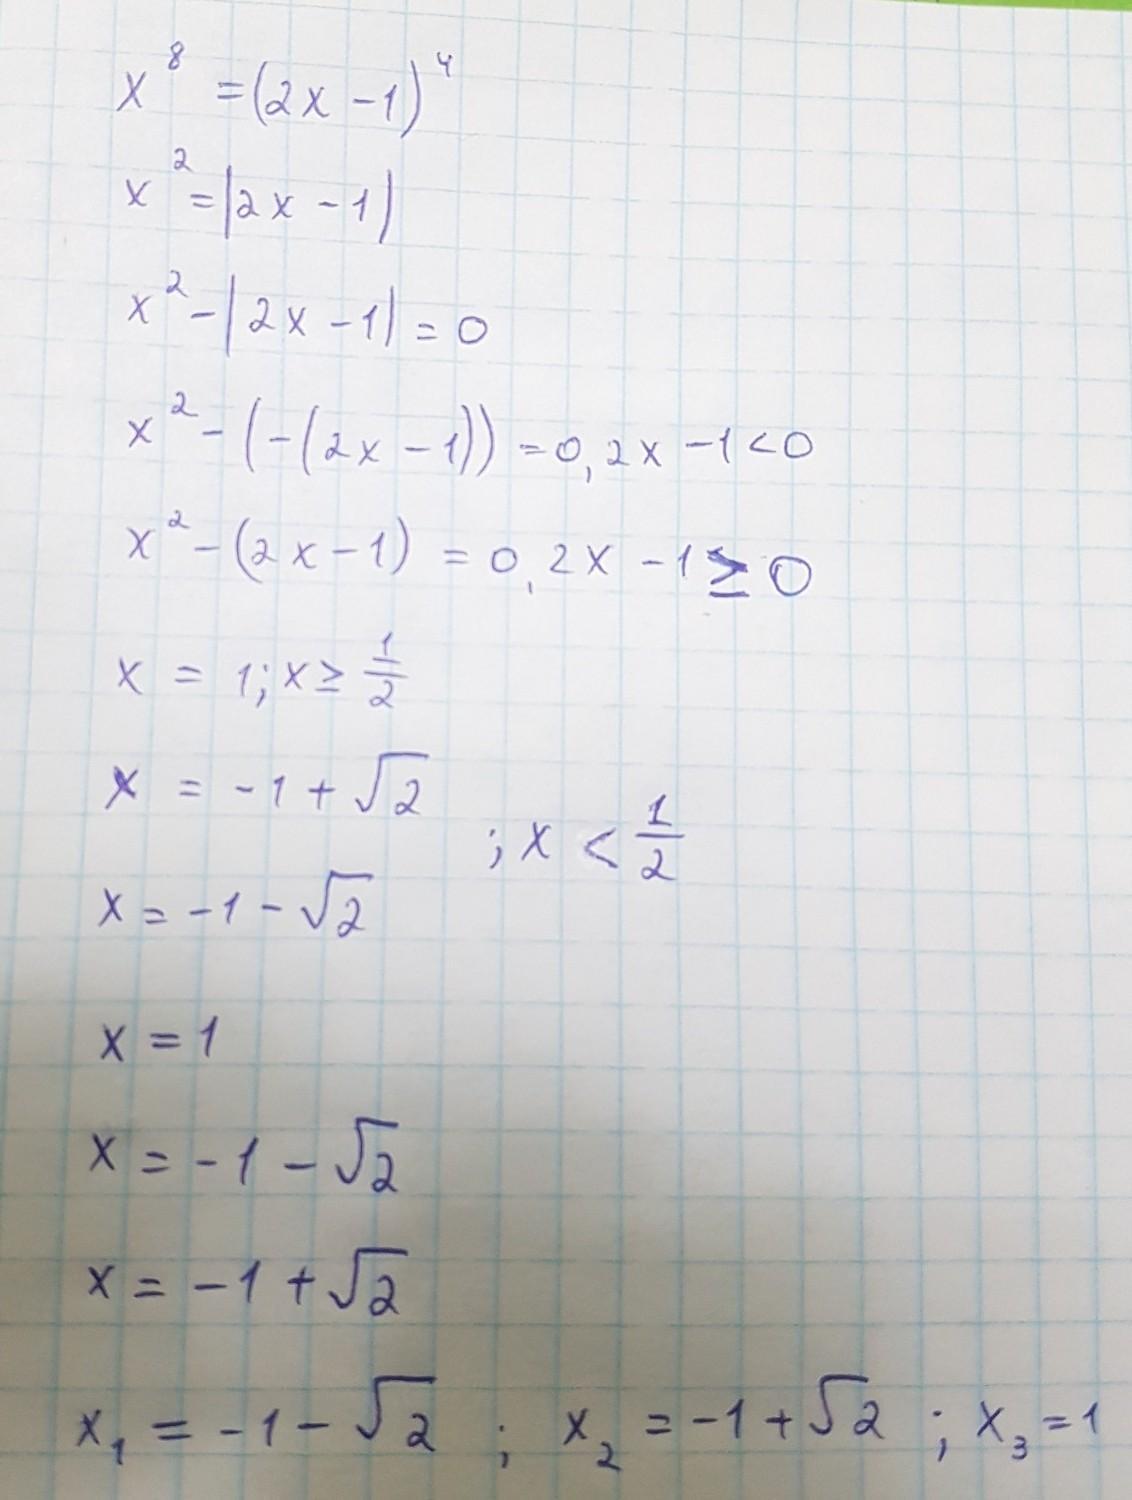 x⁸ = (2x - 1)⁴
x² = |2x - 1|
x² - |2x - 1| = 0
x² - (-(2x - 1)) = 0, 2x - 1 < 0
x² - (2x - 1) = 0, 2x - 1 ≥ 0
x = 1; x ≥ 1/2
x = -1 + √2
; x < 1/2
x = -1 - √2
x = 1
x = -1 - √2
x = -1 + √2
x₁ = -1 - √2 ; x₂ = -1 + √2 ; x₃ = 1